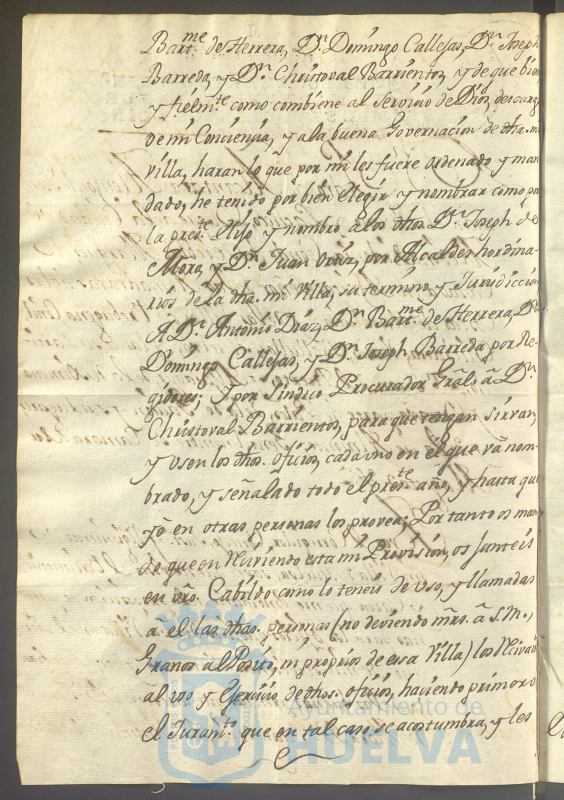 Bart.me de Herrera, Dn. Domingo Callejas, Dn. Joseph
Barreda, y Dn. Christoval Barrientos, y de que bien
y fielmte. como combiene al Servicio de Dios, descargo
de mi Conciencia, y a la buena Governacion de dha. mi
villa, haran lo que por mi les fuere ordenado y man
dado, he tenido por bien elegir y nombrar como por
la preste. elijo y nombro a los dhos. Dn. Joseph de
Mora, y Dn. Juan Ortiz, por Alcaldes hordina-
rios de la dha. mi Villa, su termino y Jurisdiccion
A Dn. Antonio Diaz, Dn. Bartme. de Herrera, Dn.
Domingo Callejas, y Dn. Joseph Barreda por Re-
gidores; Y por Sindico Procurador Gral. â Dn.
Christoval Barrientos, para que tengan sirvan,
y usen los dhos. oficios, cada uno en el que va nom-
brado, y señalado todo el preste. año, y hasta que
yo en otras personas los provea; Por tanto os man
de que en reciviendo esta mi Provision, os junteis
en vro. Cabildo como lo teneis de uso, y llamadas
â el las dhas. personas (no deviendo mrs. â S.M.,
Granos âl Posito, ni proprios de esa Villa) los recivais
al uso y Exercicio de dhos. oficios, haciendo primero
el Juramto. que en tal caso se acostumbra, y les
Ayuntamiento de
HUELVA